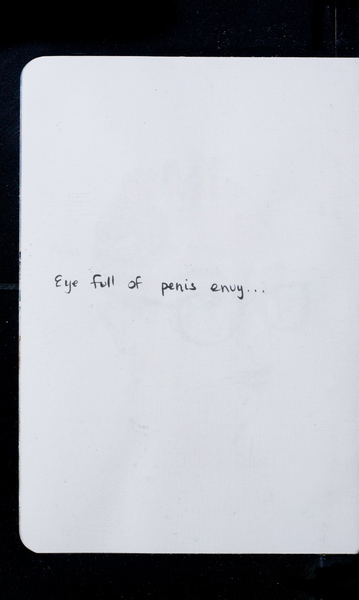 Eye full of penis envy...